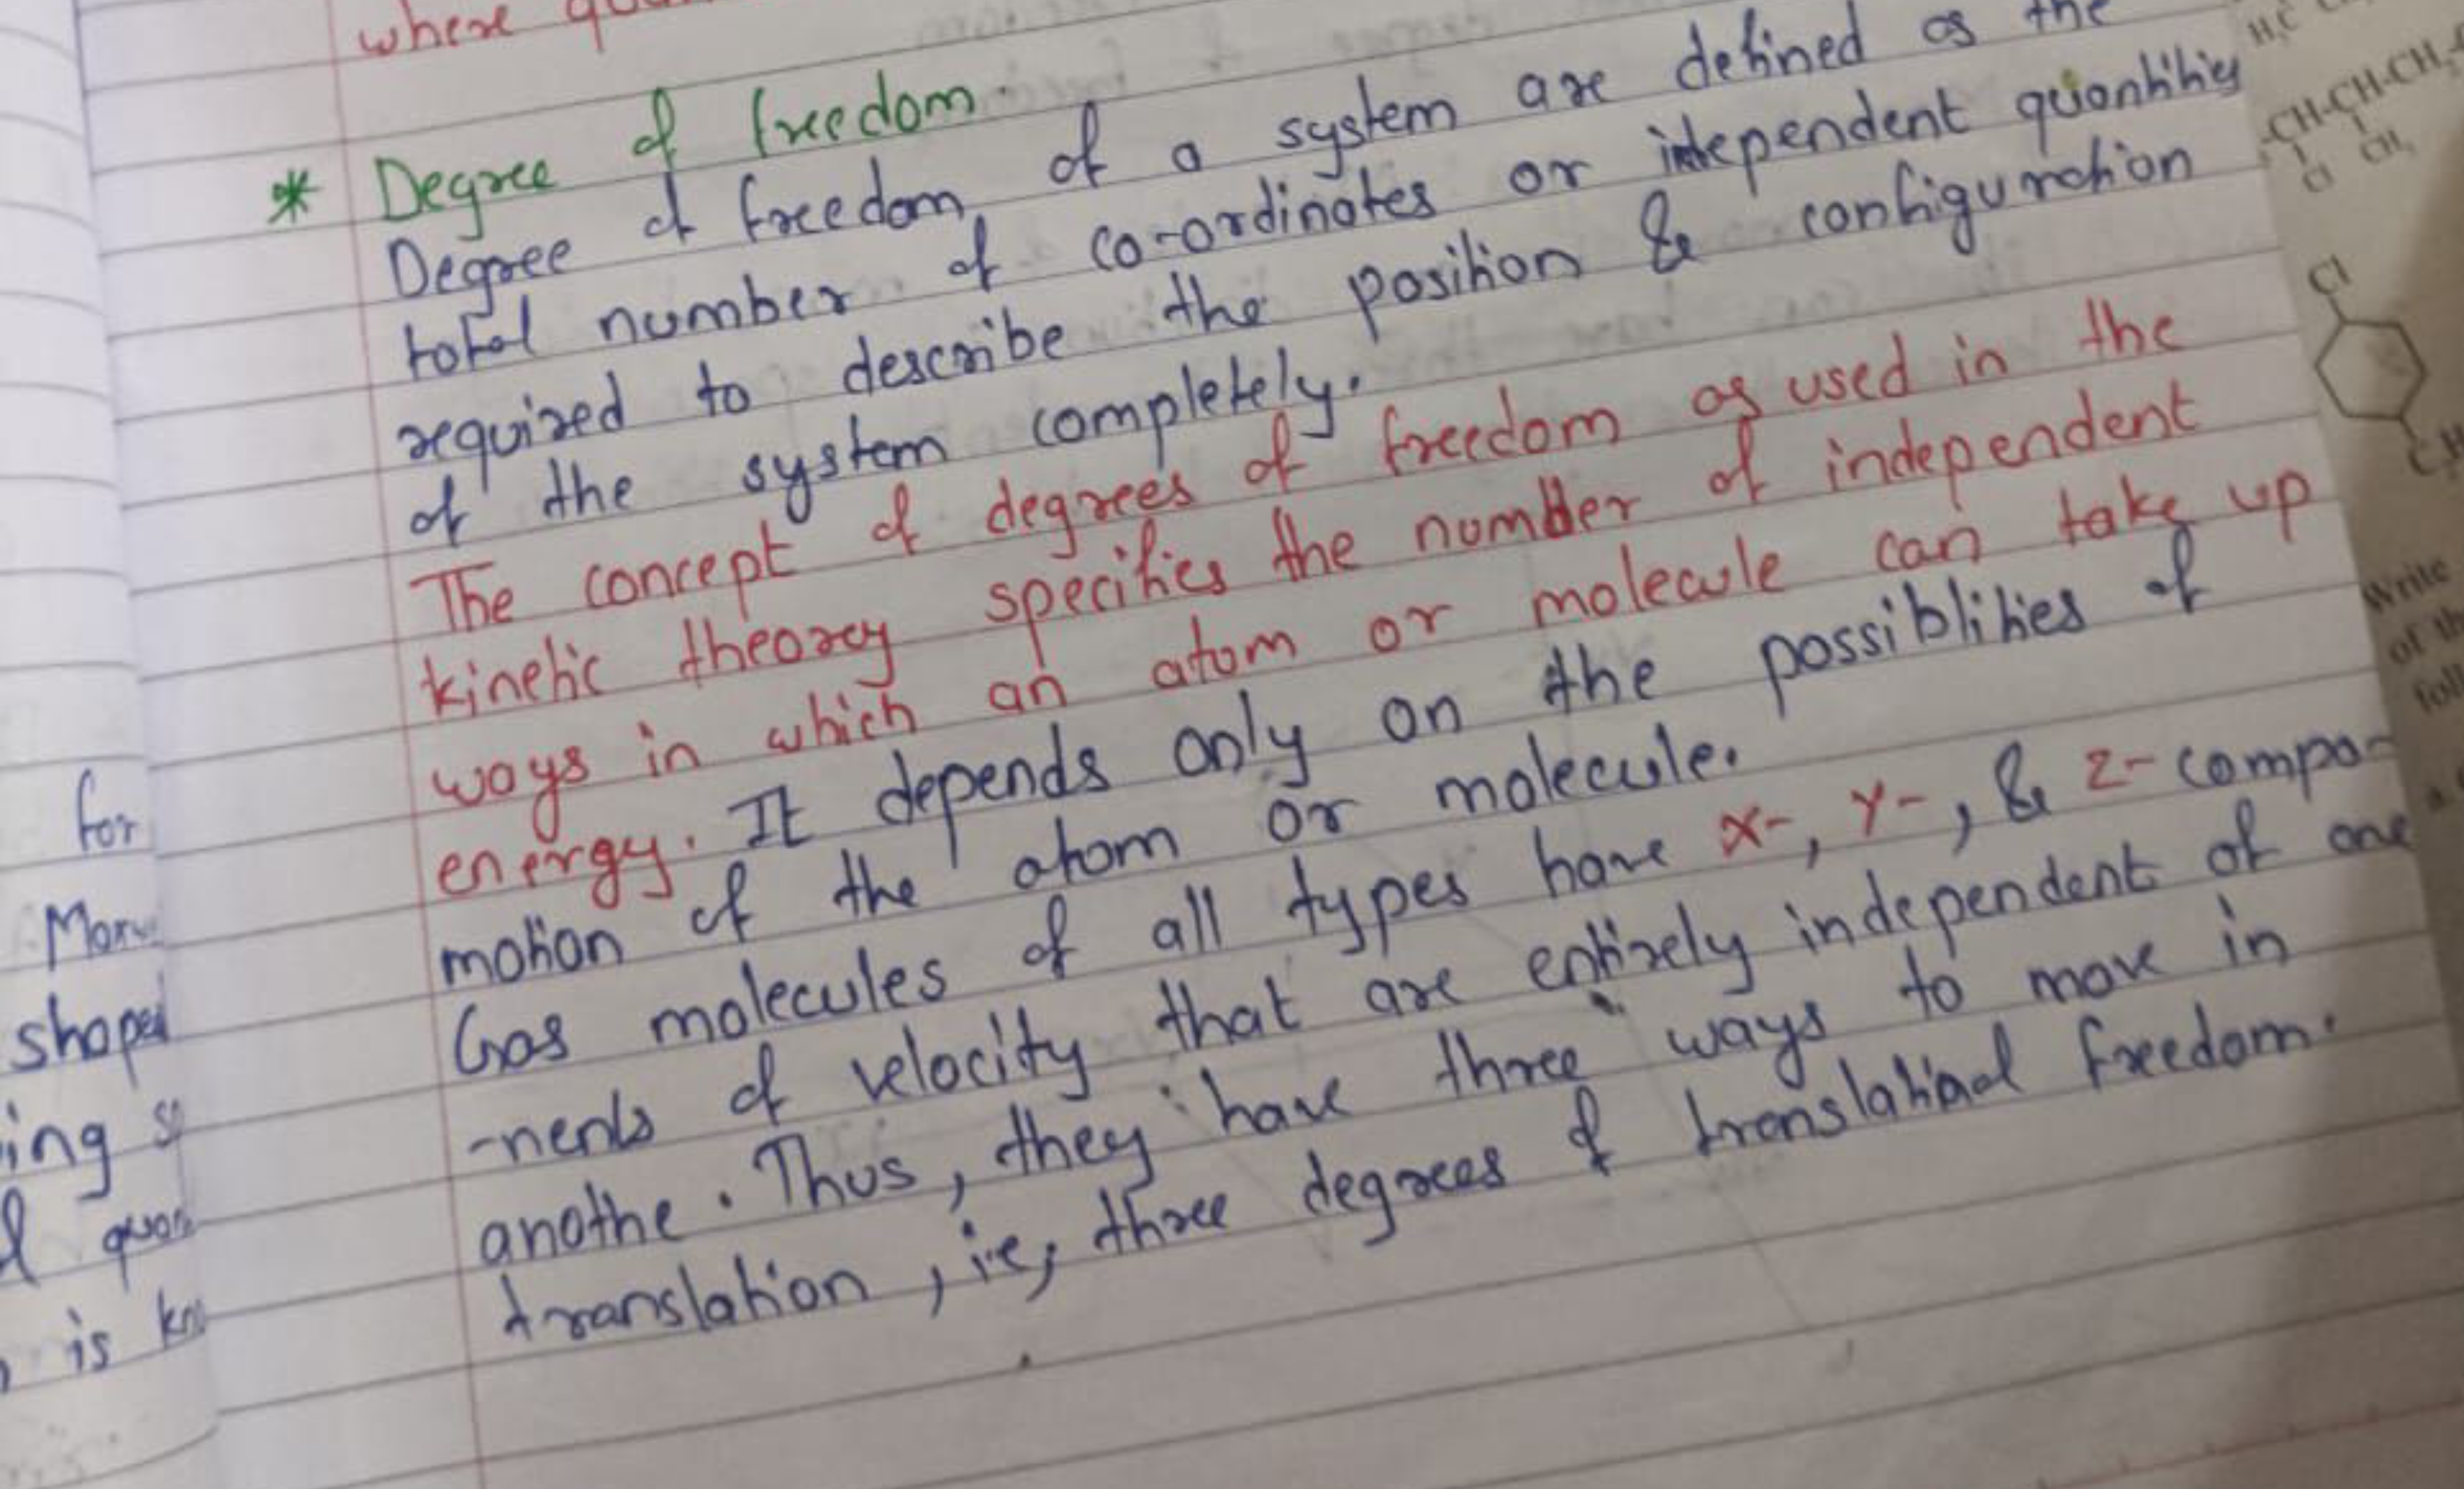 where
* Degree of freedom.
Degree of freedom, of a system are defined as the
total number of co-ordinates or independent quantities
required to describe the position & configuration
of the system completely.
The concept of degrees of freedom as used in the
kinetic theorey specifies the number of independent
ways in which an atom or molecule can take up
energy. It depends only on the possiblities of
motion of the atom or molecule.
Gas molecules of all types have x-, y-, & z- compo-
-nents of velocity that are entirely independent of one
anothe. Thus, they have three ways to move in
translation, i.e, three degrees of translational freedom.
for
shaped
ing
is
H₃C
-CH-CH-CH₂-
Cl CH₃
Cl
Write
of the